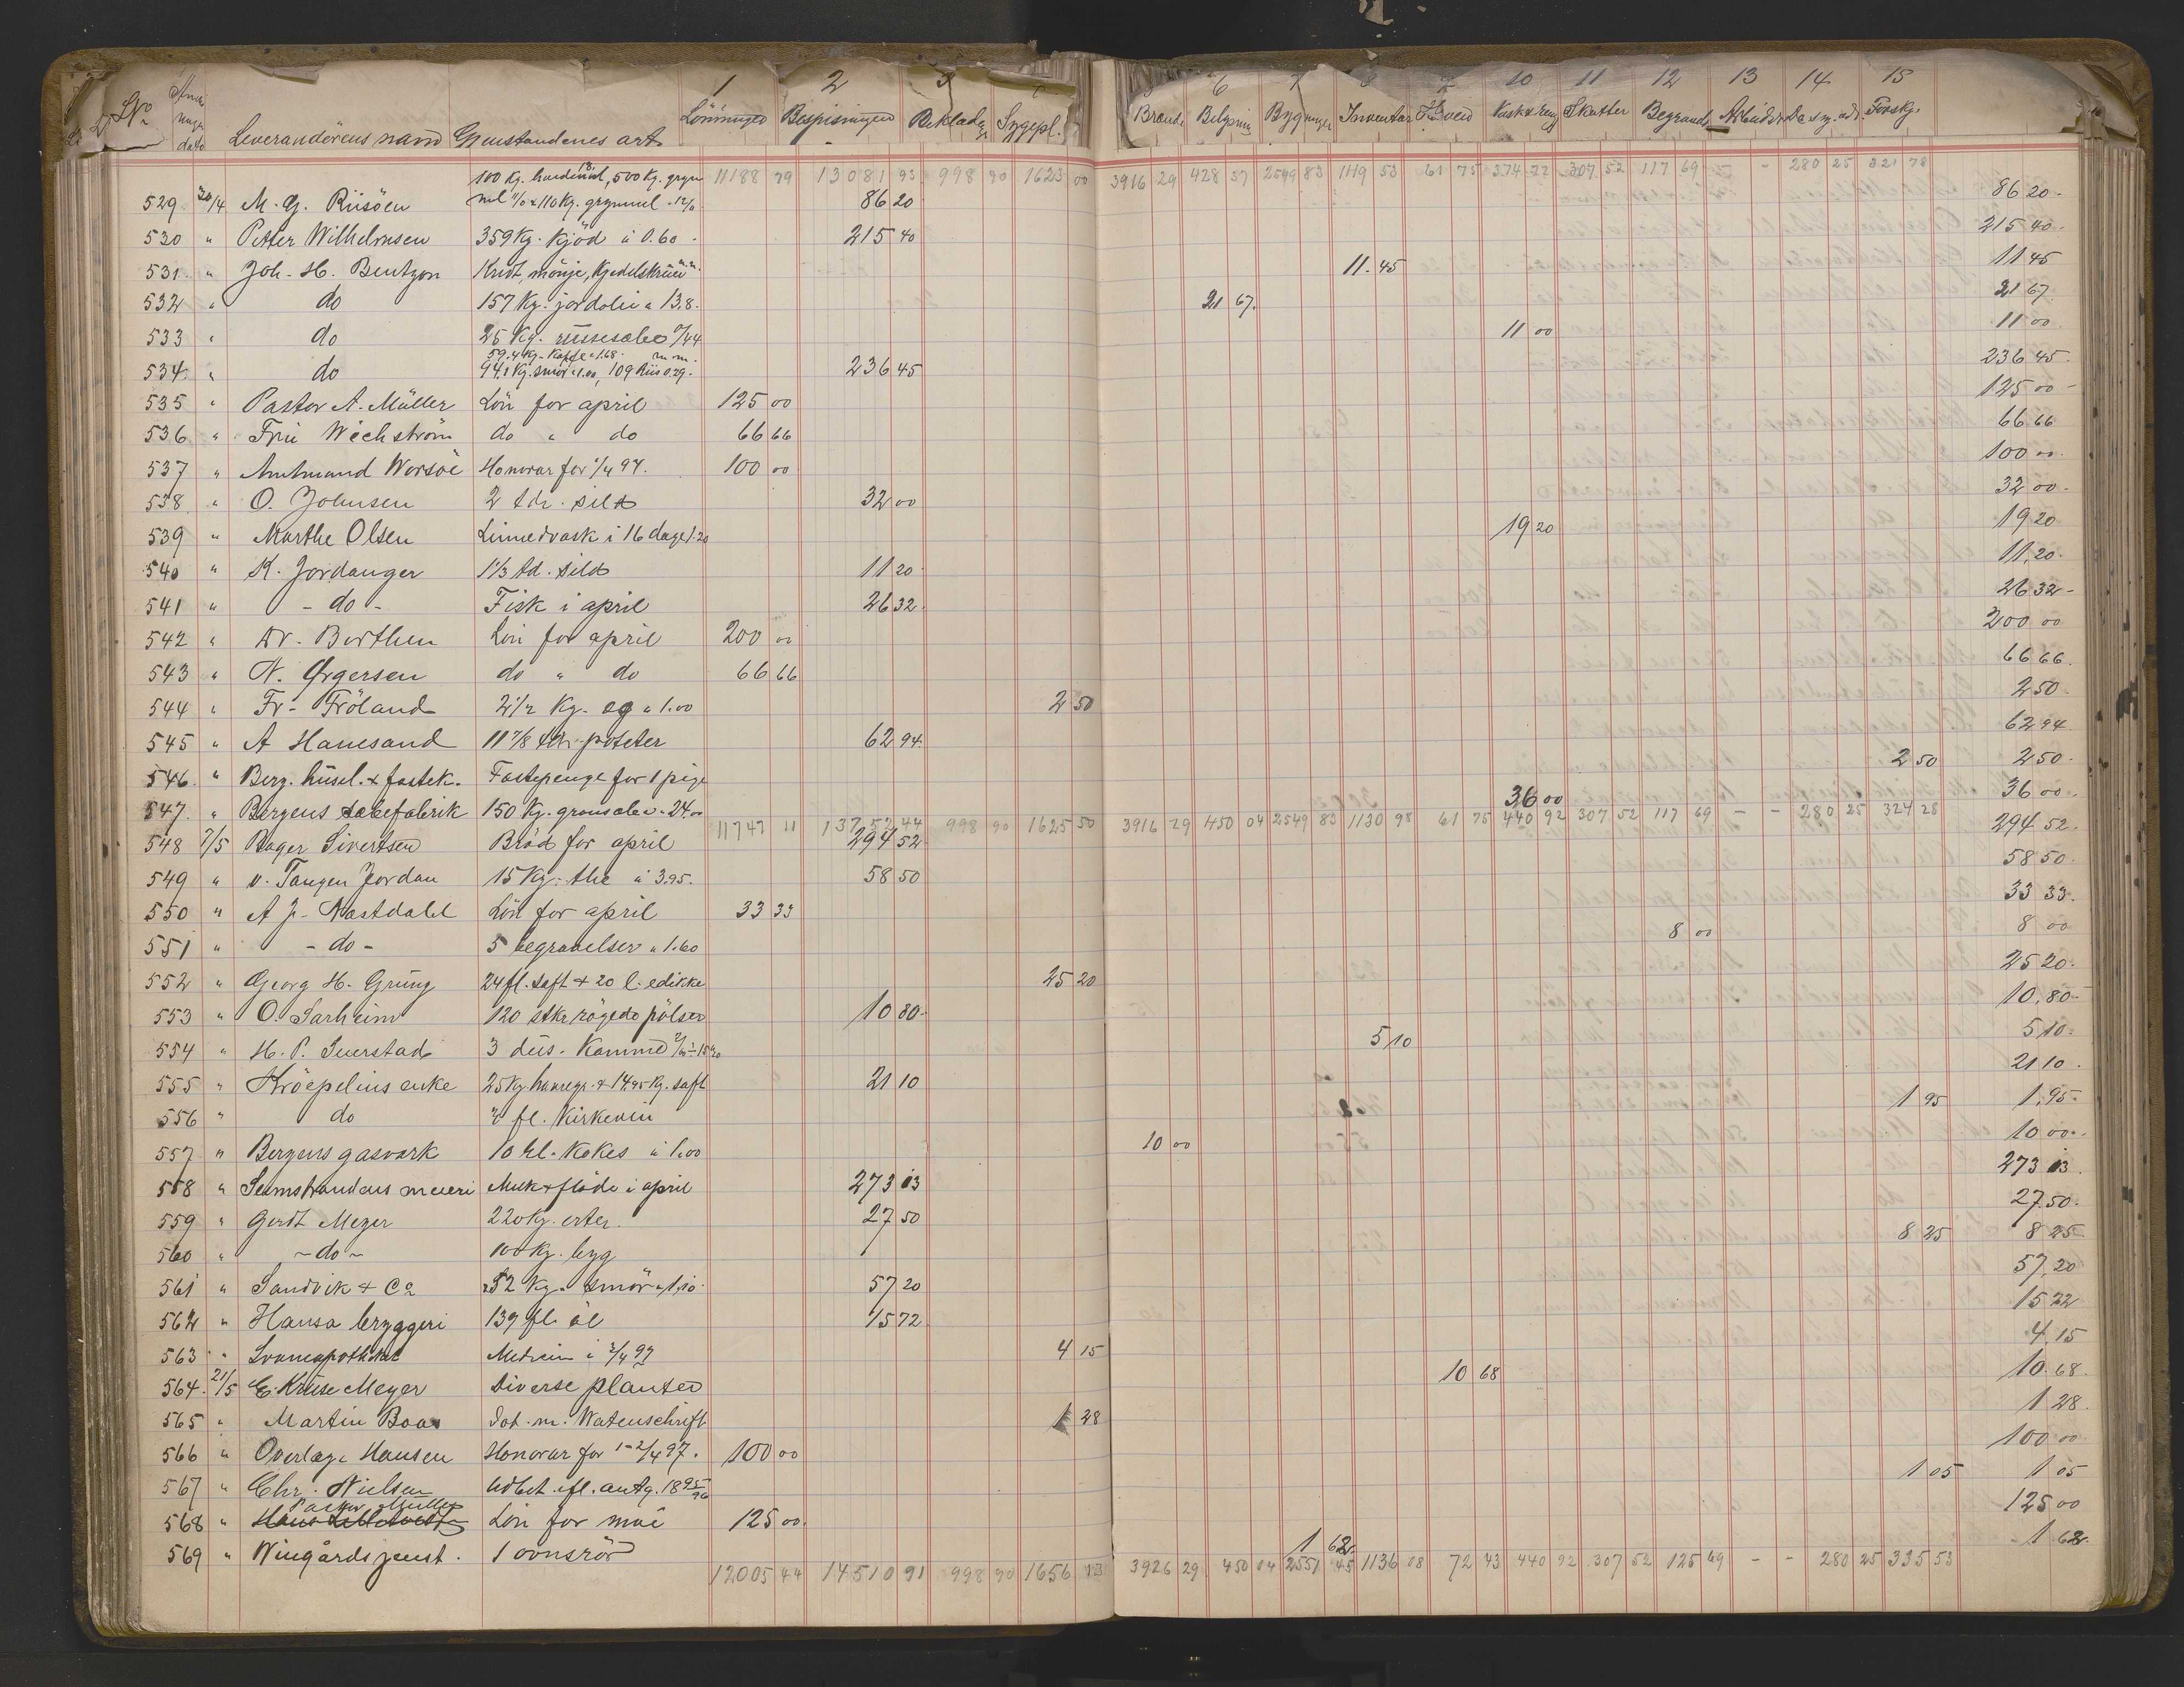 1 2 3 6 7 8 9 10 11 12 13 14 15
No Leverandörens navn Gjenstandenes art Lönninger Bespisningen Beklædn Sygepl. Brænde Belysning Bygninger Inventar Haven Vask & reng Skatter Begravels Arbeidsl Forskj.
100 Kg. 500 Kg. gryn 11188 79 13081 93 998 90 1623 00 3916 29 428 37 2549 83 1119 53 61 75 374 72 307 52 117 69 - - 280 25 321 78
529 30/4 M. G. Riisöen mel 11/0 & 110 Kg. grynmel 12/0 86 20 86 20
530 " Petter Wilhelmsen 359 Kg. Kjöd à 0.60 215 40 215 40
531 " Joh. H. Bentzon Kridt, mönje, Kjedelskrüer 11.45 11 45
532 " do 157 Kg. jordolie à 13.8 21 67 21 67
533 " do 25 Kg. russesæbe 0/44 11 00 11 00
59.4 Kg. Kaffe à 1.68 m.m.
534 " do 94.1 Kg. smör, 109 Riis 0.29 236 45 236 45
535 " Pastor A. Müller Lön for april 125 00 125 00
536 " Frü Wechström do " do 66 66 66 66
537 " Amtmand Worsöe Honorar for 1/4 97. 100 00 100 00
538 " O. Johnsen 2 tdr. sild 32 00 32 00
539 " Marthe Olsen Linnedvask i 16 dage 1.20 19 20 19 20
540 " K. Jordanger 1 1/3 td. sild 11 20 11,20
541 " - do - Fisk i april 26 32 26 32
542 " Dr. Borthen Lön for april 200 00 200 00
543 " N. Ørgersen do " do 66 66 66 66
544 " Fr. Fröland 2 1/2 Kg. à 1.00 2 50 2 50
545 " A Hanesand 11 7/8 tdr poteter 62 94 62 94
546 " Berg. hüsel. & fæstek. Fæstepenge for 1 pige 2 50 2 50
547 " Bergens sæbefabrik 150 Kg. grønsæbe 24.00 36 00 36 00
11747 11 13752 44 998 90 1625 50 3916 29 450 04 2549 83 1130 98 61 75 440 92 307 52 117 69 - - 280 25 324 28
548 7/5 Bager Sivertsen Bröd for april 294 52 294 52
549 " v. Tangen Jordan 15 Kg. the à 3.95. 58 50 58 50
550 " A J. Nastdahl Lön for april 33 33 33 33
551 " - do - 5 begravelser à 1.60 8 00 8 00
552 " Georg H. Grung 24 fl. saft & 20 l. edikke 25 20 25 20
553 " O. Sarheim 120 stkr rögede pölser 10 80 10.80
554 " H. P. 3 düs. Kamme 5 10 5 10
555 " Kröepelins enke 25 Kg. havregr. & 14.95 Kg. saft 21 10 21 10
556 " do 2 fl. Kirkevin 1 95 1.95
557 " Bergens gasværk 10 hl. Kokes à 1.00 10 00 10 00
558 " meieri Melk & flöde i april 273 13 273 13
559 " Gerdt Meyer 220 Kg. erter. 27 50 27.50
560 " - do - 100 Kg. byg 8 25 8 25
561 " Sandvik & Co 52 Kg. smör à 1,10 57 20 57,20
562 " Hansa bryggeri 139 fl. öl 15 72 15 22
563 " Svaneapotheket Medicin i 3/4 97 4 15 4 15
564 21/5 E. Krüse Meyer Diverse planter 10 68 10.68
565 " Martin Boas Dob. m. Watenschrift 1 28 1 28
566 " Overlæge Hansen Honorar for 1-2/4 97. 100 00 100 00
567 " Chr. Nielsen Udbet. antg. 1895/96 1 05 1 05
Pastor Müller
568 " Lön for mai 125 00 125 00
569 " Wingårds jenst. 1 ovnsrör 1 62 1 62
12005 44 14510 91 998 90 1656 13 3926 29 450 04 2551 45 1136 08 72 43 440 92 307 52 125 69 - - 280 25 335 53